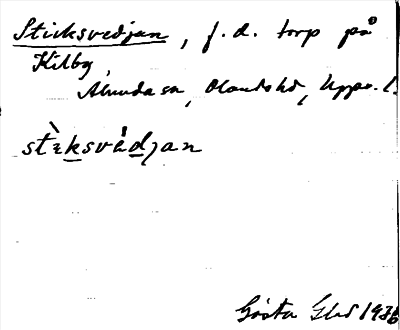 Sticksvedjan, f.d. torp på
Kilby
Almunda sn, Olandshd, Upps. l.
stɛ̀ksvèdjan
Gösta Glad 1936